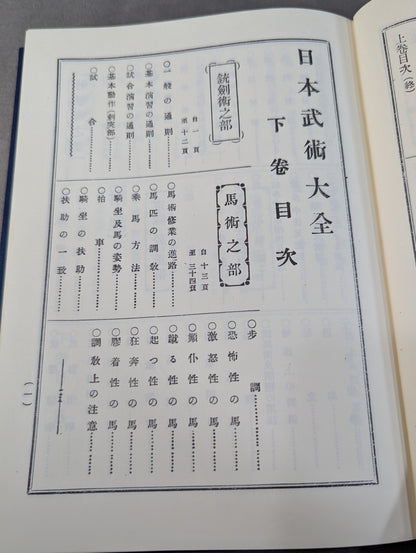 上卷目次(終)
日本武術大全
下卷目次
銃劍術之部
自一頁
至十二頁
○一般の通則
○基本演習の通則
○試合演習の通則
○基本動作(刺突部)
○試合
馬術之部
自十三頁
至三十四頁
○馬術修業の進路
○馬匹の調敎
○乘馬方法
○騎坐及馬の姿勢
○拍車
○騎坐の扶助
○扶助の一致
○步調
○恐怖性の馬
○激怒性の馬
○顚仆性の馬
○蹴る性の馬
○起つ性の馬
○狂奔性の馬
○膠着性の馬
○調敎上の注意
(一)